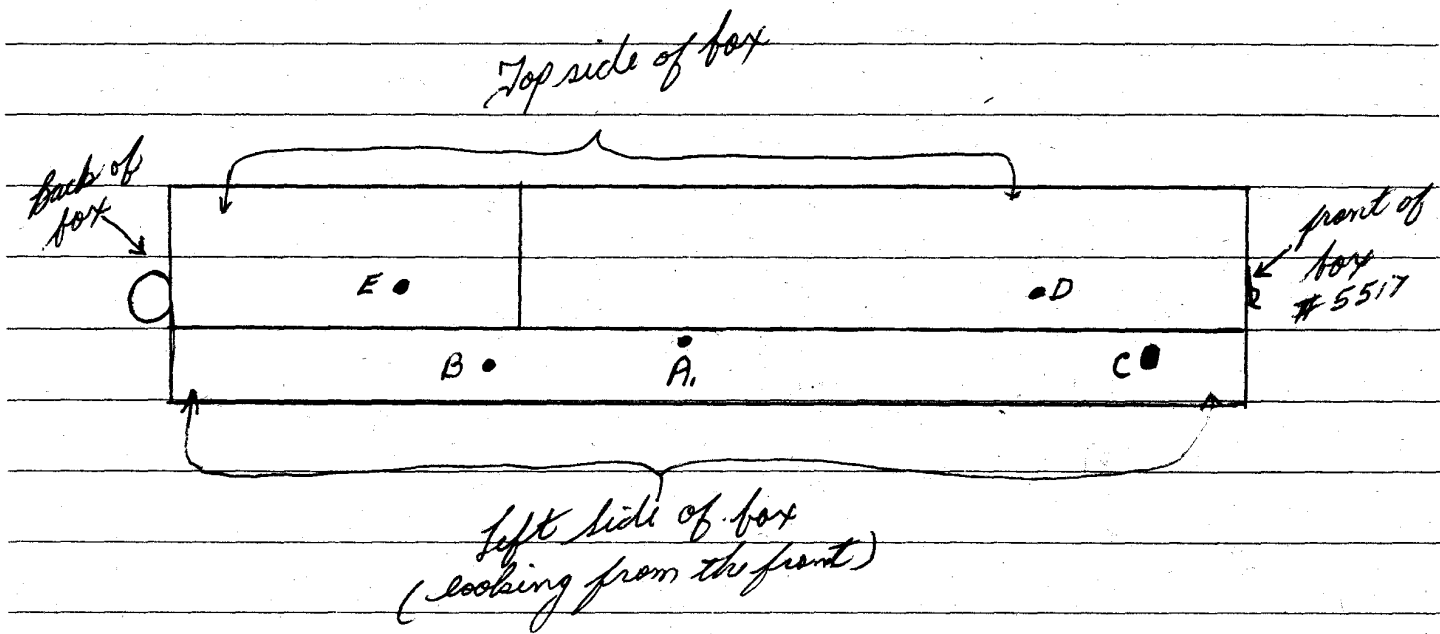 Top side of box
Back of
box
front of
box
# 5517
E
D
B
A.
C
Left side of box
(looking from the front)